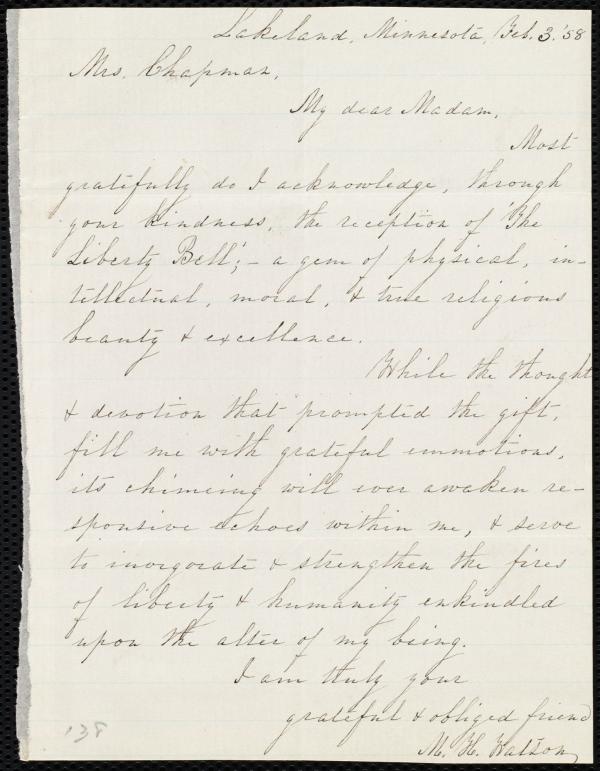 Lakeland, Minnesota, Feb. 3. '58
Mrs. Chapman,
My dear Madam,
Most
gratefully do I acknowledge, through
your kindness, the reception of 'The
Liberty Bell'; – a gem of physical, in-
tellectual, moral, & true religious
beauty & excellence.
While the thought
& devotion that prompted the gift,
fill me with grateful emmotions,
its chimeing will ever awaken re-
sponsive echoes within me, & serve
to invigorate & strengthen the fires
of liberty & humanity enkindled
upon the alter of my being.
I am truly your
grateful & obliged friend
M. H. Watson
138